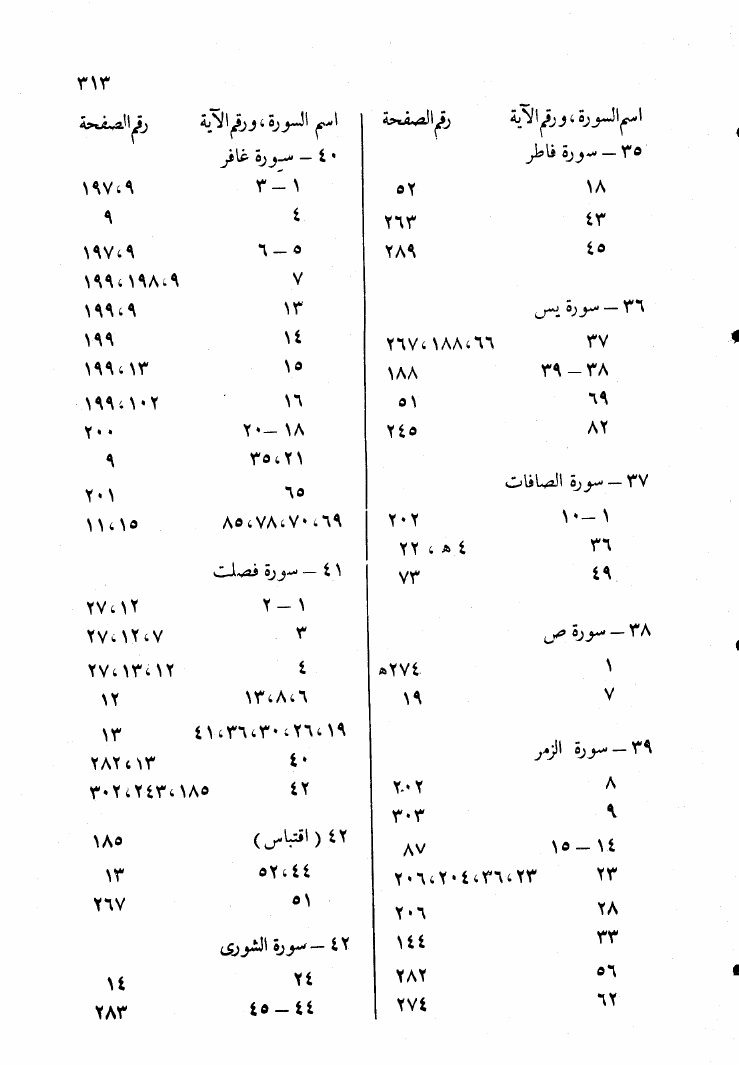 ٣١٣
اسم السورة، ورقم الآية رقم الصفحة
٣٥ – سورة فاطر
١٨ ٥٢
٤٣ ٢٦٣
٤٥ ٢٨٩
٣٦ – سورة يس
٣٧ ٦٦، ١٨٨، ٢٦٧
٣٨ – ٣٩ ١٨٨
٦٩ ٥١
٨٢ ٢٤٥
٣٧ – سورة الصافات
١ – ١٠ ٢٠٢
٣٦ ٤ هـ، ٢٢
٤٩ ٧٣
٣٨ – سورة ص
١ ٢٧٤هـ
٧ ١٩
٣٩ – سورة الزمر
٨ ٢٠٢
٩ ٣٠٣
١٤ – ١٥ ٨٧
٢٣ ٢٣، ٣٦، ٢٠٤، ٢٠٦
٢٨ ٢٠٦
٣٣ ١٤٤
٥٦ ٢٨٢
٦٢ ٢٧٤
اسم السورة، ورقم الآية رقم الصفحة
٤٠ – سورة غافر
١ – ٣ ٩، ١٩٧
٤ ٩
٥ – ٦ ٩، ١٩٧
٧ ٩، ١٩٨، ١٩٩
١٣ ٩، ١٩٩
١٤ ١٩٩
١٥ ١٣، ١٩٩
١٦ ١٠٢، ١٩٩
١٨ – ٢٠ ٢٠٠
٢١، ٣٥ ٩
٦٥ ٢٠١
٦٩، ٧٠، ٧٨، ٨٥ ١٥، ١١
٤١ – سورة فصلت
١ – ٢ ١٢، ٢٧
٣ ٧، ١٢، ٢٧
٤ ١٢، ١٣، ٢٧
٦، ٨، ١٣ ١٢
١٩، ٢٦، ٣٠، ٣٦، ٤١ ١٣
٤٠ ١٣، ٢٨٢
٤٢ ١٨٥، ٢٤٣، ٣٠٢
٤٢ (اقتباس) ١٨٥
٤٤، ٥٢ ١٣
٥١ ٢٦٧
٤٢ – سورة الشورى
٢٤ ١٤
٤٤ – ٤٥ ٢٨٣